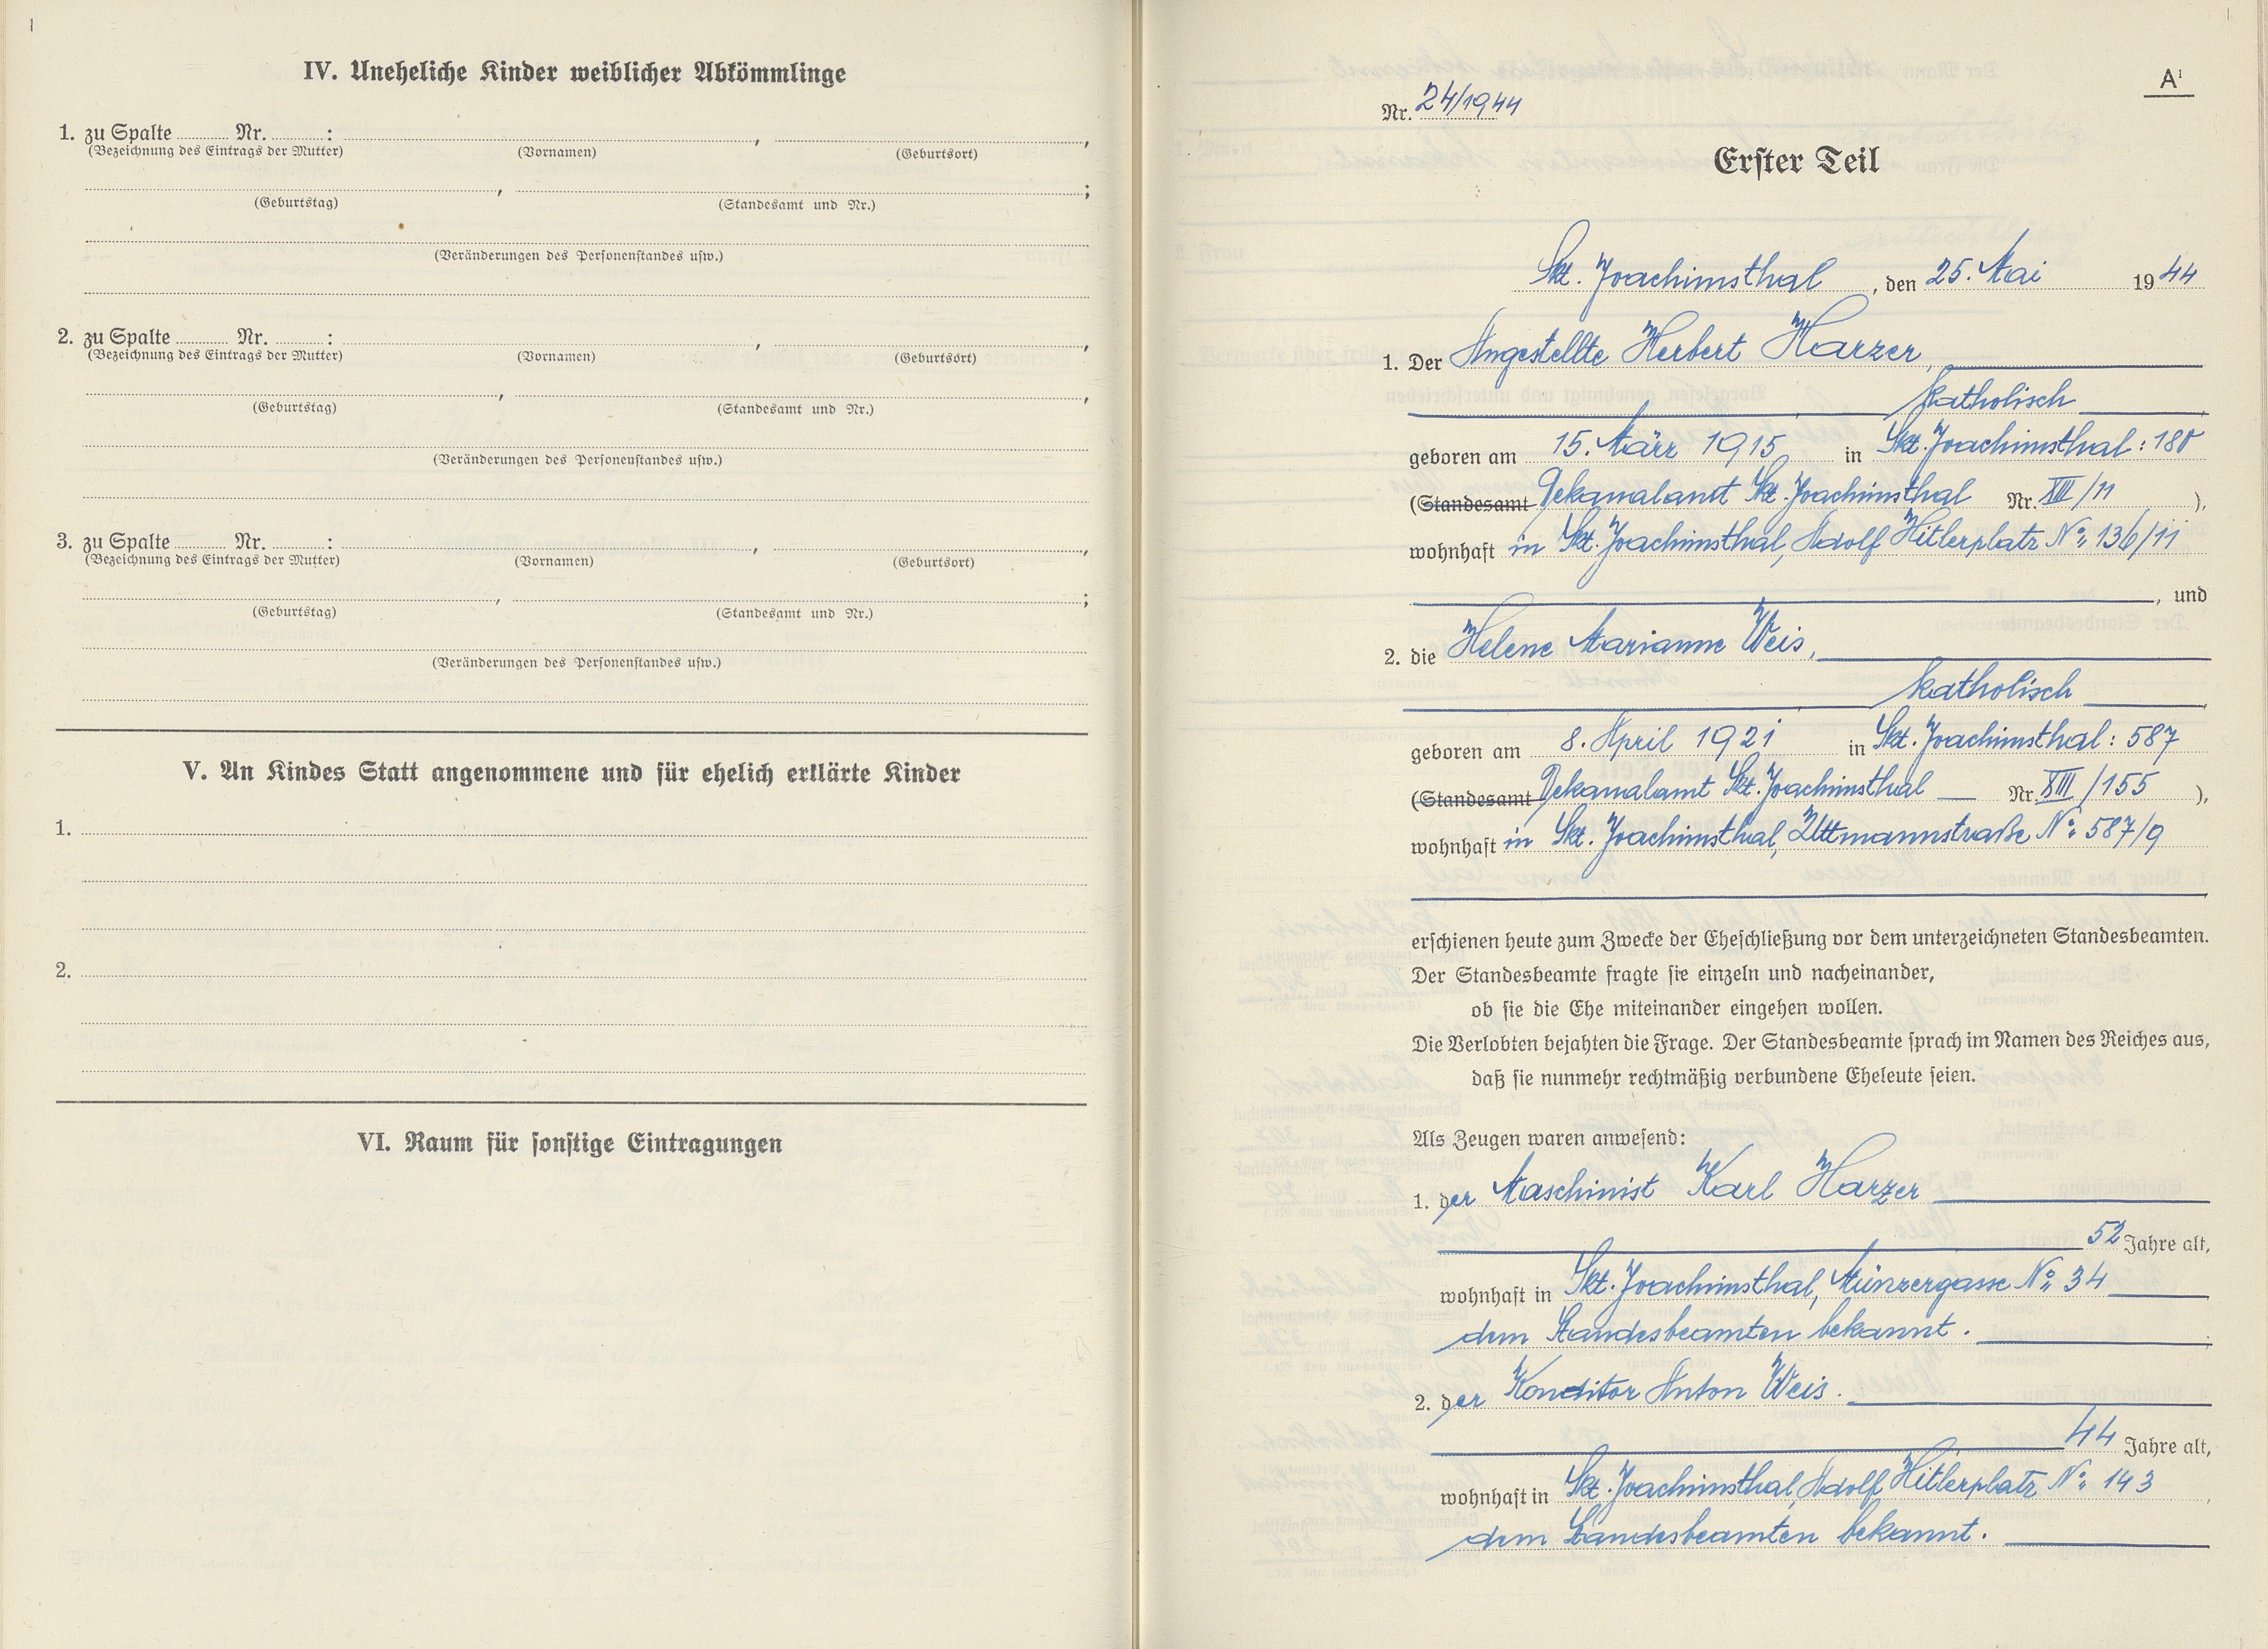 IV. Uneheliche Kinder weiblicher Abkömmlinge
1. zu Spalte ........ Nr. ........ : ........ , ........ ,
(Bezeichnung des Eintrags der Mutter) (Vornamen) (Geburtsort)
........ , ........ ;
(Geburtstag) (Standesamt und Nr.)
(Veränderungen des Personenstandes usw.)
2. zu Spalte ........ Nr. ........ : ........ , ........ ,
(Bezeichnung des Eintrags der Mutter) (Vornamen) (Geburtsort)
........ , ........ ,
(Geburtstag) (Standesamt und Nr.)
(Veränderungen des Personenstandes usw.)
3. zu Spalte ........ Nr. ........ : ........ , ........ ,
(Bezeichnung des Eintrags der Mutter) (Vornamen) (Geburtsort)
........ , ........ ;
(Geburtstag) (Standesamt und Nr.)
(Veränderungen des Personenstandes usw.)
V. An Kindes Statt angenommene und für ehelich erklärte Kinder
1.
2.
VI. Raum für sonstige Eintragungen
A¹
Nr. 24/1944
Erster Teil
Skt. Joachimsthal, den 25. Mai 1944
1. Der Angestellte Herbert Harzer,
katholisch
geboren am 15. März 1915 in Skt. Joachimsthal: 180
(Standesamt Dekanalamt Skt. Joachimsthal Nr. XIII/11 ),
wohnhaft in Skt. Joachimsthal, Adolf Hitlerplatz No. 136/11
, und
2. die Helene Marianne Weis,
katholisch
geboren am 8. April 1921 in Skt. Joachimsthal: 587
(Standesamt Dekanalamt Skt. Joachimsthal — Nr. XIII/155 ),
wohnhaft in Skt. Joachimsthal, Uttmannstraße No. 587/9
erschienen heute zum Zwecke der Eheschließung vor dem unterzeichneten Standesbeamten.
Der Standesbeamte fragte sie einzeln und nacheinander,
ob sie die Ehe miteinander eingehen wollen.
Die Verlobten bejahten die Frage. Der Standesbeamte sprach im Namen des Reiches aus,
daß sie nunmehr rechtmäßig verbundene Eheleute seien.
Als Zeugen waren anwesend:
1. der Maschinist Karl Harzer
52 Jahre alt,
wohnhaft in Skt. Joachimsthal, Münzergasse No. 34
dem Standesbeamten bekannt.
2. der Konditor Anton Weis.
44 Jahre alt,
wohnhaft in Skt. Joachimsthal, Adolf Hitlerplatz No. 143 ,
dem Standesbeamten bekannt.